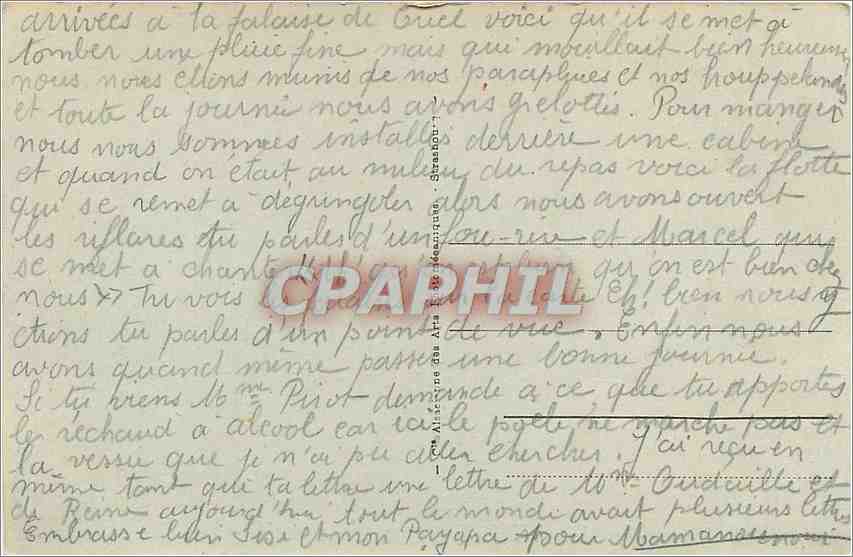 arrivées à la falaise de Criel voici qu'il se met à
tomber une pluie fine mais qui mouillait bien heureuse
nous nous étions munis de nos parapluies et nos houppelandes
et toute la journée nous avons grelottés. Pour manger
nous nous sommes installés derrière une cabine
et quand on était au milieu du repas voici la flotte
qui se remet à dégringoler alors nous avons ouvert
les riflares tu parles d'un fou-rire et Marcel qui
se met à chanter qu'on est bien chez
nous >> Tu vois la carte Eh! bien nous y
étions tu parles d'un point de vue. Enfin nous
avons quand même passé une bonne journée.
Si tu viens Mme Pirot demande à ce que tu apportes
le réchaud à alcool car ici le poële ne marche pas et
la que je n'ai pu aller chercher. J'ai reçu en
même temps que ta lettre une lettre de Mme et
de Reine aujourd'hui tout le monde avait plusieurs lettres
Embrasse bien et mon Payapa pour Maman
Cie Alsacienne des Arts Photomécaniques. - Strasbourg
CPAPHIL